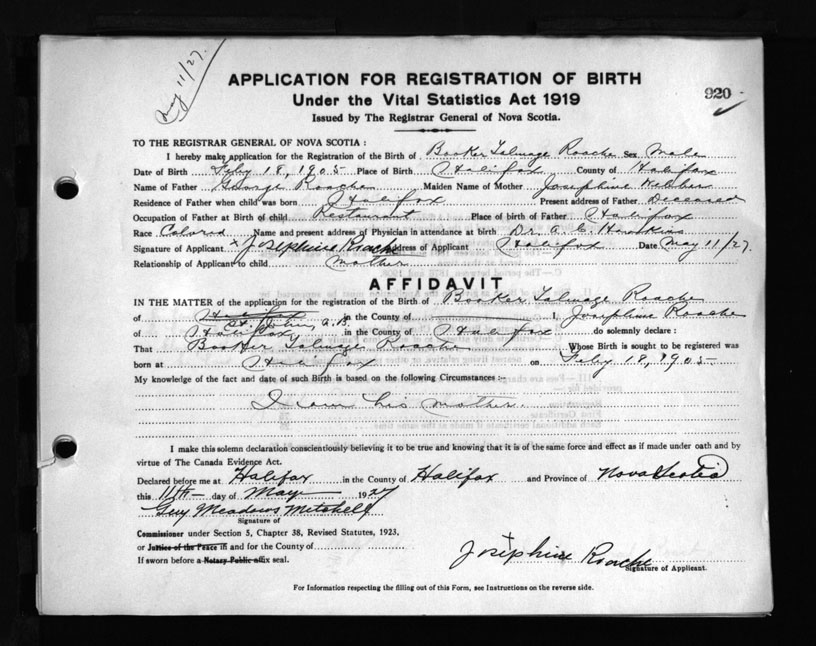 May 11/27.
APPLICATION FOR REGISTRATION OF BIRTH
920
Under the Vital Statistics Act 1919
Issued by The Registrar General of Nova Scotia.
TO THE REGISTRAR GENERAL OF NOVA SCOTIA :
I hereby make application for the Registration of the Birth of Booker Talmage Roache Sex Male
Date of Birth Feby 18, 1905 Place of Birth Halifax County of Halifax
Name of Father George Roache Maiden Name of Mother Josephine
Residence of Father when child was born Halifax Present address of Father Deceased
Occupation of Father at Birth of child Restaurant Place of birth of Father Halifax
Race Colored Name and present address of Physician in attendance at birth Dr. A. C. Hawkins
Signature of Applicant x Josephine Roache Address of Applicant Halifax Date May 11/27.
Relationship of Applicant to child mother
AFFIDAVIT
IN THE MATTER of the application for the registration of the Birth of Booker Talmage Roache
of Halifax in the County of I, Josephine Roache
of Halifax in the County of Halifax do solemnly declare :
That Booker Talmage Roache Whose Birth is sought to be registered was
born at Halifax on Feby 18, 1905
My knowledge of the fact and date of such Birth is based on the following Circumstances :-
I am his mother.
I make this solemn declaration conscientiously believing it to be true and knowing that it is of the same force and effect as if made under oath and by
virtue of The Canada Evidence Act.
Declared before me at Halifax in the County of Halifax and Province of Nova Scotia
this 11th day of May 1927
Guy Meadows Mitchell
Signature of
Commissioner under Section 5, Chapter 38, Revised Statutes, 1923,
or Justice of the Peace in and for the County of
If sworn before a Notary Public affix seal.
Josephine Roache
Signature of Applicant.
For Information respecting the filling out of this Form, see Instructions on the reverse side.